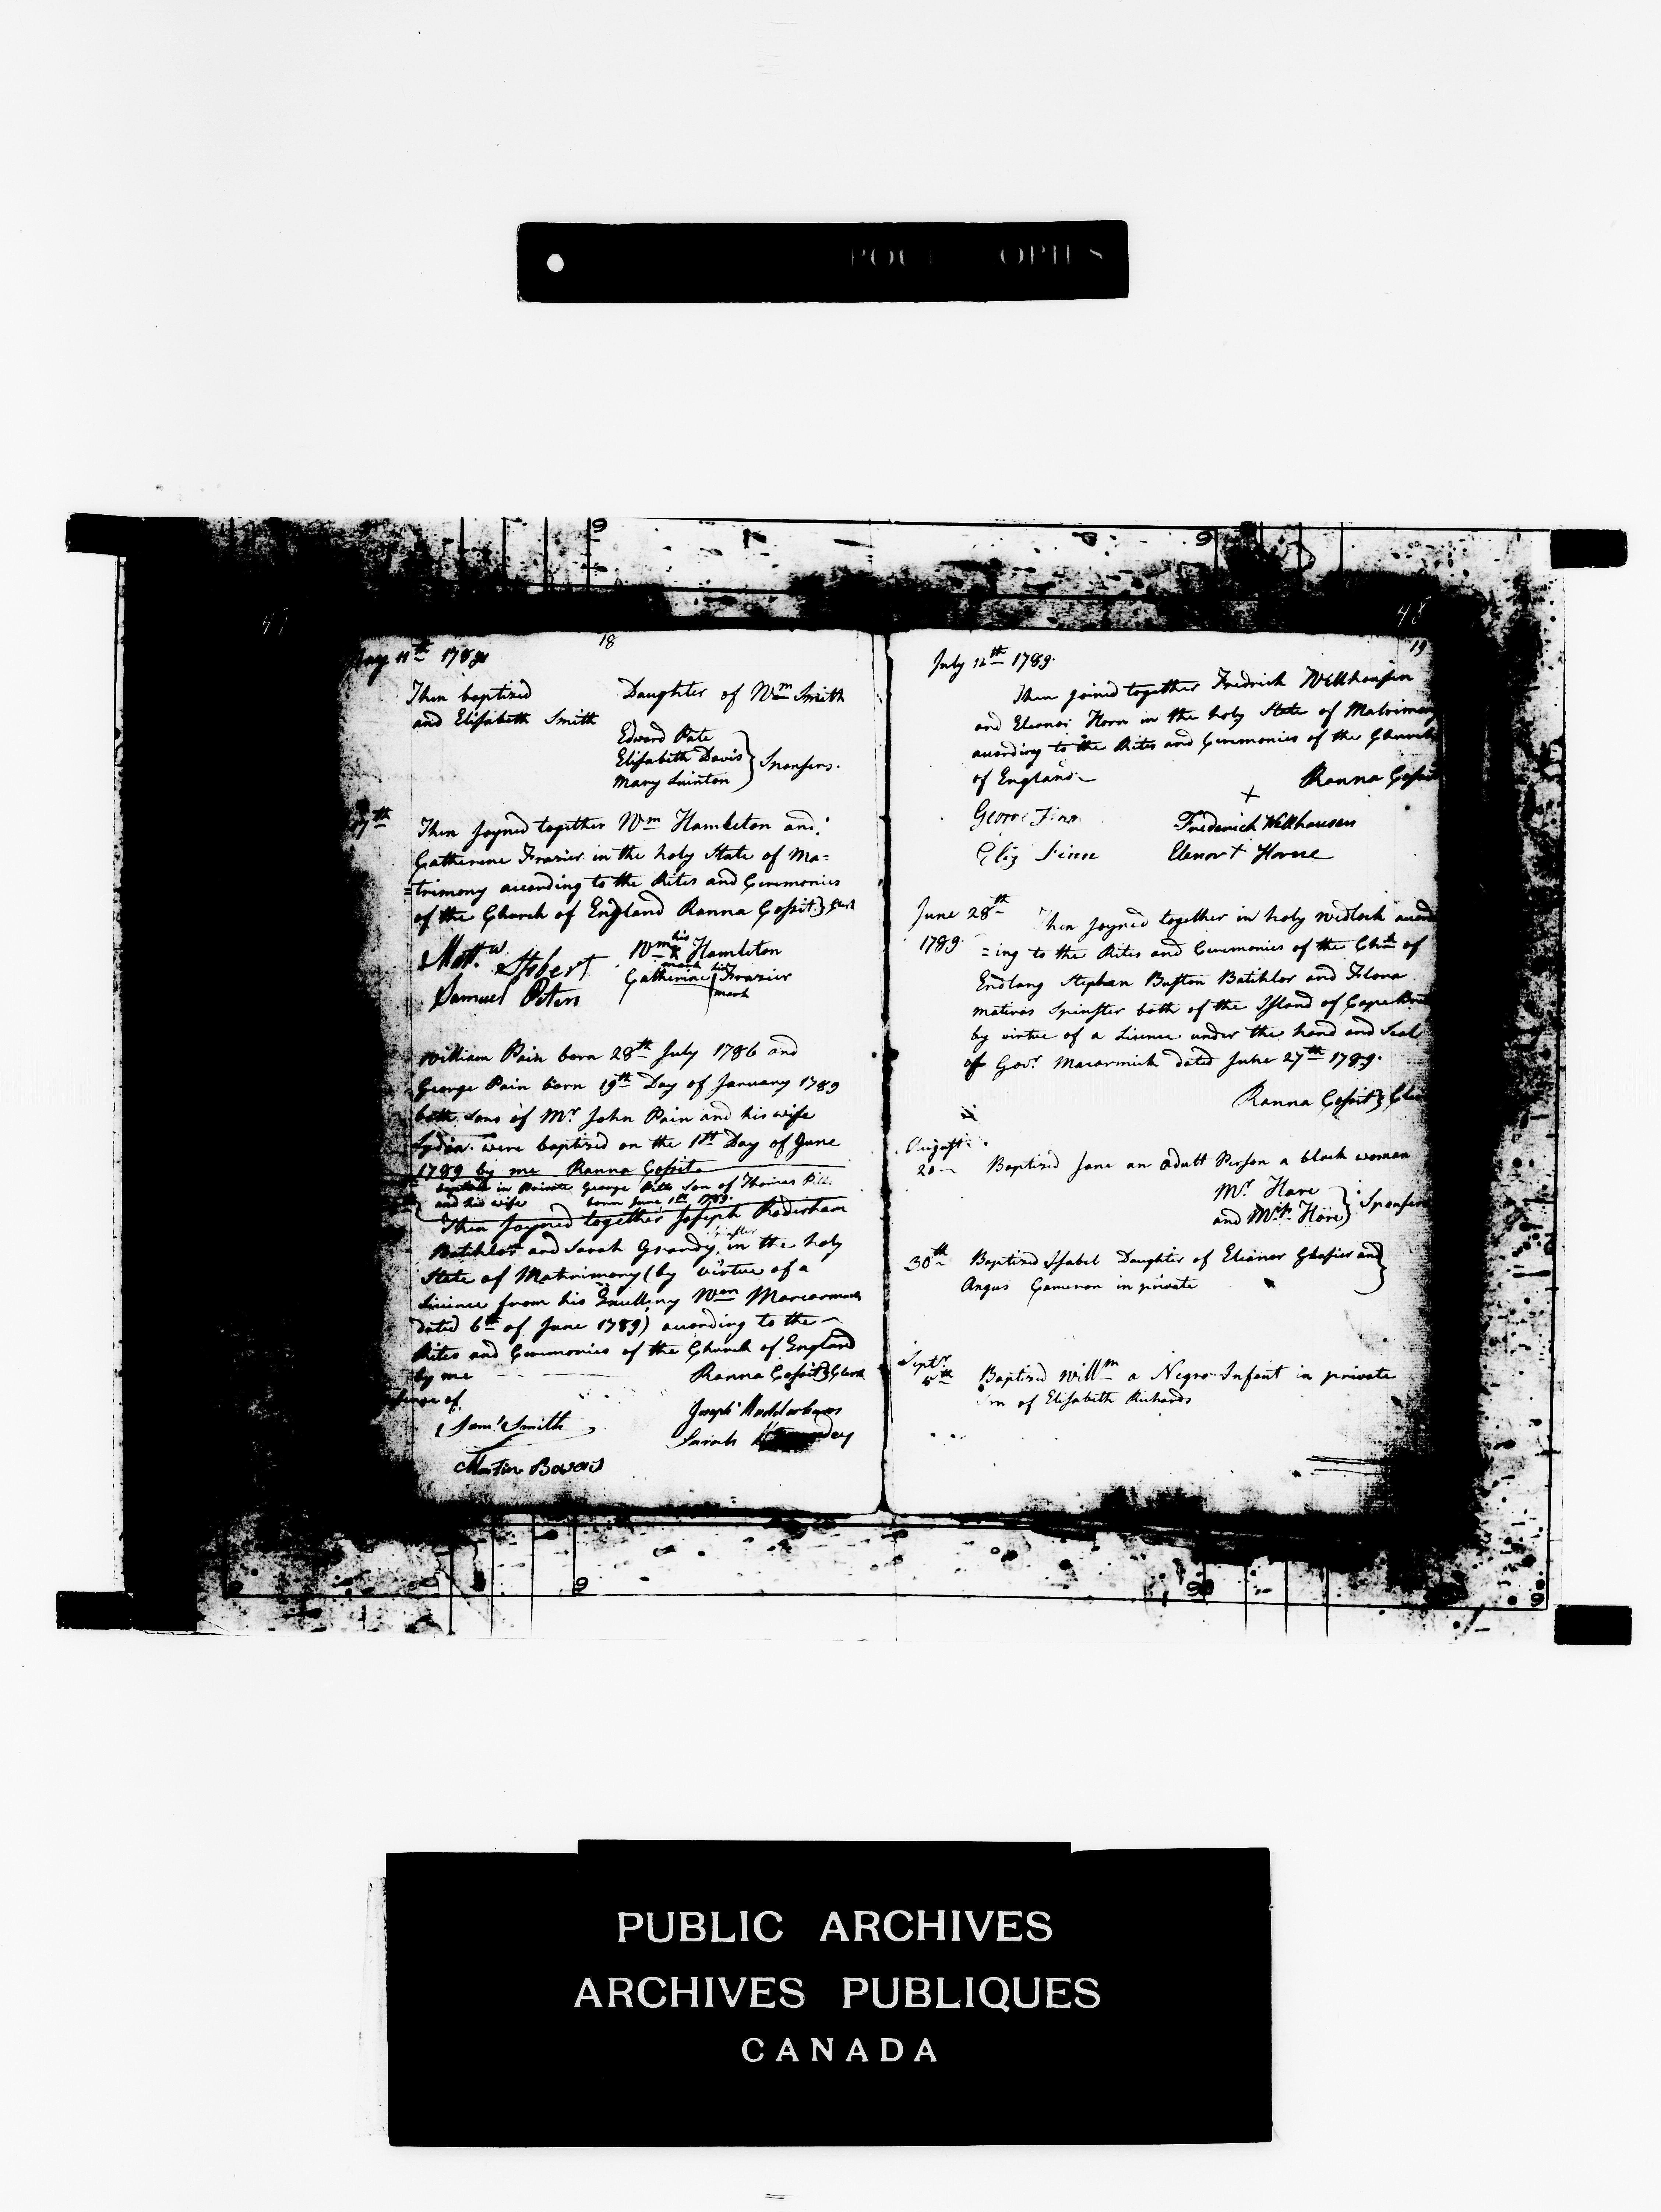 POU OPIES
48
18
May 11th 1789
Then baptized Daughter of Wm Smith
and Elisabeth Smith
Edward Pate
Elisabeth Davis } Sponsers.
Mary Quinton
17th
Then joyned together Wm Hambleton and
Catherine Frazier in the holy State of Ma=
=trimony according to the Rites and Ceremonies
of the Church of England Ranna Cossit } Clerk
Mattw Stobert Wm his x mark Hambleton
Samuel Peters Catherine his mark Frazier
William Pain born 28th July 1786 and
George Pain born 19th Day of January 1789
both sons of Mr John Pain and his wife
Lydia were baptized on the 1st Day of June
1789 by me Ranna Cossit
baptized in Private George Pitts son of Thomas
and his wife born June 1st 1789.
Then joyned together Joseph Roderham
Batihler and Sarah Grandy Spinster in the holy
State of Matrimony (by virtue of a
Licince from his Excellency Wm Marcarmick
dated 6th of June 1789) according to the
Rites and Ceremonies of the Church of England
by me Ranna Cossit } Clerk
sence of
Saml Smith Joseph
Martin Bowers Sarah
19
July 12th 1789.
Then joined together Fredrick Wellhausen
and Elenor Horn in the holy State of Matrimony
according to the Rites and Ceremonies of the Church
of England
Ranna Cossit
George Finn Frederick Wellhausen
Eliz Finn Elenor + Horne
June 28th
1789.
Then joyned together in holy wedlock accord
=ing to the Rites and Ceremonies of the Chh of
Endlang Stephen Buston Batihlor and Flora
Spinster both of the Island of Cape
by virtue of a Lisence under the hand and Seal
of Govr Macarmick dated June 27th 1789.
Ranna Cossit }
August
20
Baptized Jane an adult Person a black woman
Mr Hare
and Mrs Hare } Sponsers
30th
Baptized Isabel Daughter of Elienor Glasier and
Angus Cameron in private
Septr
5th
Baptized Willm a Negro Infant in private
Son of Elisabeth Richards
PUBLIC ARCHIVES
ARCHIVES PUBLIQUES
CANADA